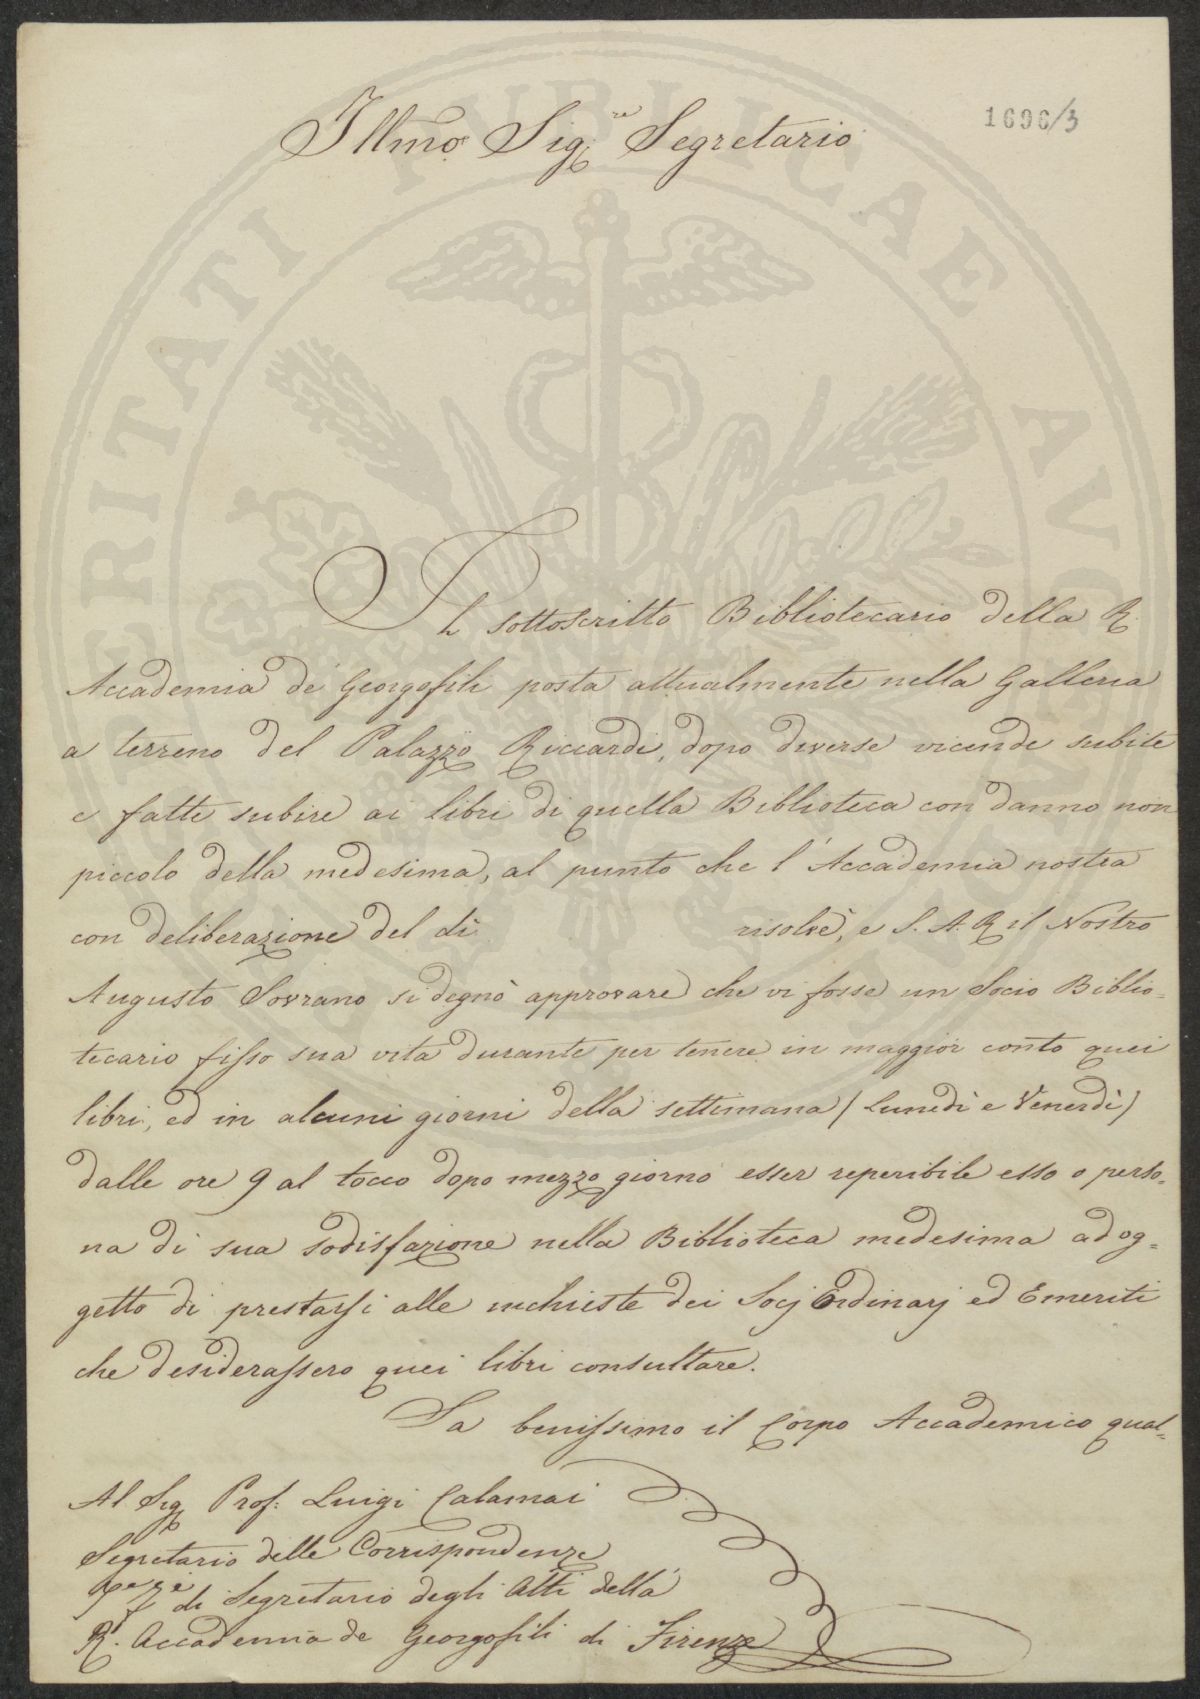 1696/3
Illmo Sig.re Segretario
Il sottoscritto Bibliotecario della R.
Accademia de' Georgofili posta attualmente nella Galleria
a terreno del Palazzo Riccardi, dopo diverse vicende subite
e fatte subire ai libri di quella Biblioteca con danno non
piccolo della medesima, al punto che l'Accademia nostra
con deliberazione del dì risolvè, e S. A. R il Nostro
Augusto Sovrano si degnò approvare che vi fosse un Socio Biblio=
tecario fisso sua vita durante per tenere in maggior conto quei
libri, ed in alcuni giorni della settimana (Lunedì e Venerdì)
dalle ore 9 al tocco dopo mezzo giorno esser reperibile esso o perso=
na di sua sodisfazione nella Biblioteca medesima ad og=
getto di prestarsi alle inchieste dei Socj Ordinarj ed Emeriti
che desiderassero quei libri consultare.
Sa benissimo il Corpo Accademico qual=
Al Sig. Prof. Luigi Calamai
Segretario delle Corrispondenze
di Segretario degli Atti della
R. Accademia de Georgofili di Firenze